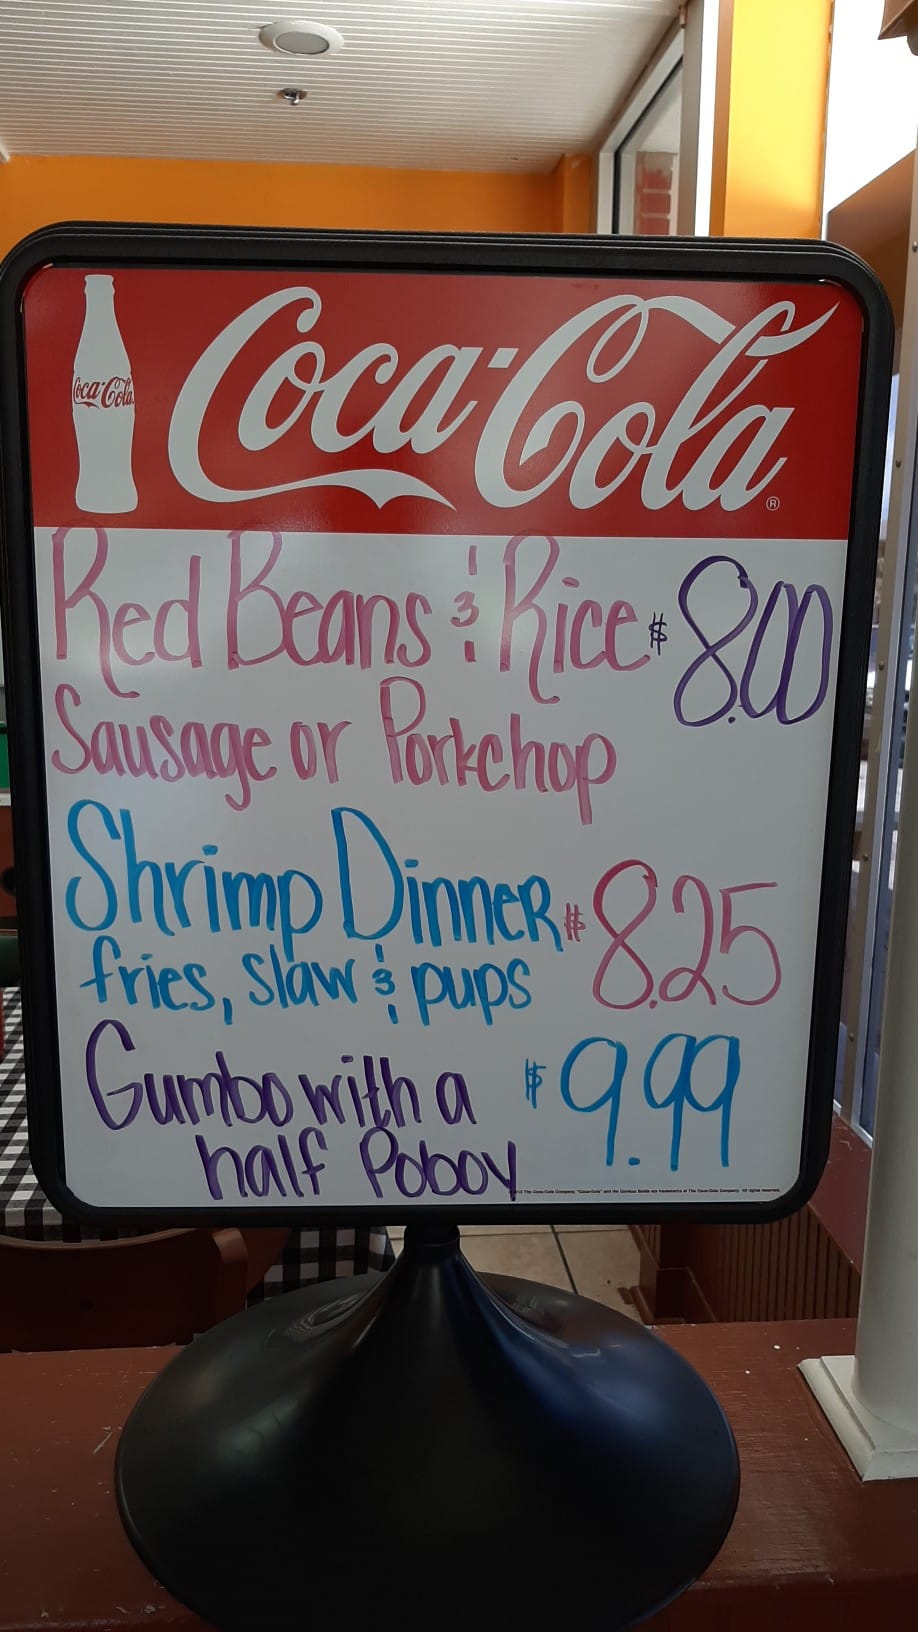 Coca-Cola
Coca-Cola®
Red Beans & Rice $8.00
Sausage or Porkchop
Shrimp Dinner $8.25
fries, slaw & pups
Gumbo with a $9.99
half Poboy
The Coca-Cola Company. "Coca-Cola" and the Contour Bottle are trademarks of The Coca-Cola Company. All rights reserved.